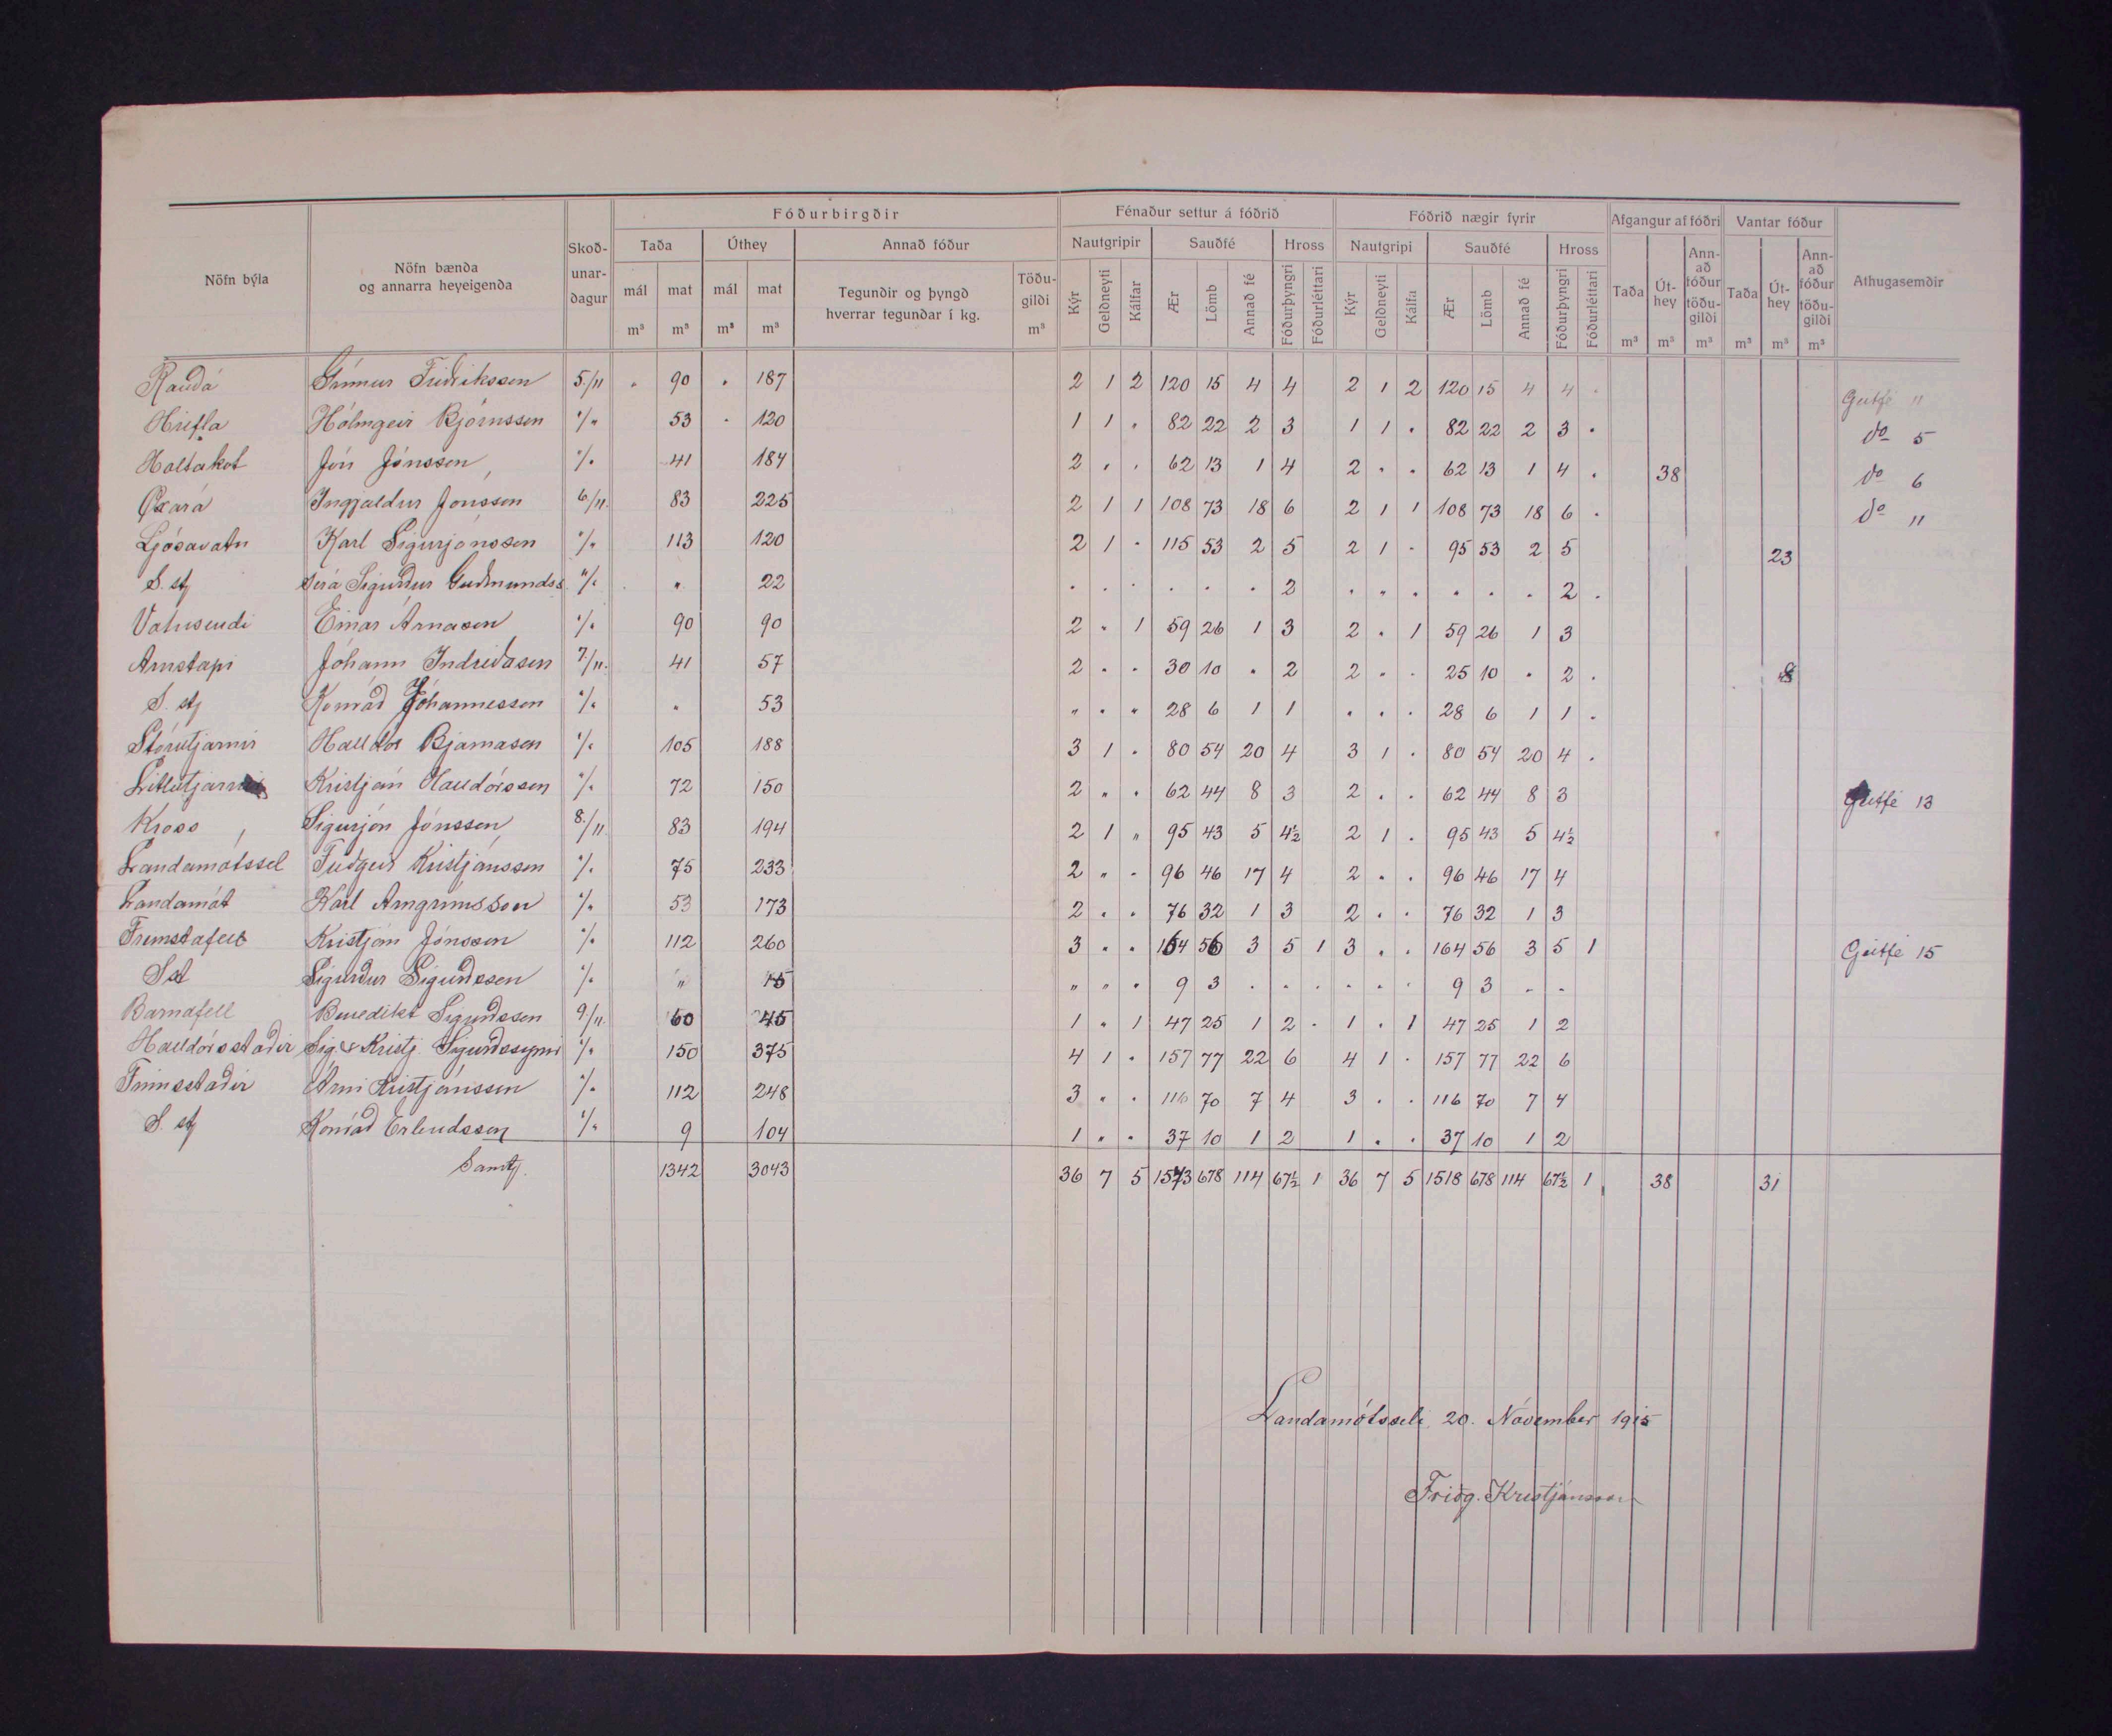 Fóðurbirgðir Fénaður settur á fóðrið Fóðrið nægir fyrir Afgangur af fóðri Vantar fóður
Nöfn býla Nöfn bænda og annarra heyeigenda Skoð-unar-dagur Taða Úthey Annað fóður Nautgripir Sauðfé Hross Nautgripi Sauðfé Hross Taða Út-hey Ann-að fóður töðu-gildi Taða Út-hey Ann-að fóður töðu-gildi Athugasemdir
mál mat mál mat Tegundir og þyngd hverrar tegundar í kg. Töðu-gildi Kýr Geldneyti Kálfar Ær Lömb Annað fé Fóðurþyngri Fóðurléttari Kýr Geldneyti Kálfa Ær Lömb Annað fé Fóðurþyngri Fóðurléttari
m³ m³ m³ m³ m³ m³ m³ m³ m³ m³ m³
Rauðá Grímur Friðriksson 5/11 " 90 " 187 2 1 2 120 15 4 4 2 1 2 120 15 4 4 " Geitfé 11
Hrifla Hólmgeir Björnsson "/" 53 " 120 1 1 " 82 22 2 3 1 1 " 82 22 2 3 " do 5
Holtakot Jón Jónsson "/" 41 184 2 " " 62 13 1 4 2 " " 62 13 1 4 " 38 do 6
Öxará Ingjaldur Jónsson 6/11 83 225 2 1 1 108 73 18 6 2 1 1 108 73 18 6 " do 11
Ljósavatn Karl Sigurjónsson "/" 113 120 2 1 " 115 53 2 5 2 1 " 95 53 2 5 23
S. st. Séra Sigurður Guðmundss "/" " 22 " " " " " 2 " " " " " " 2 "
Vatnsendi Einar Árnason "/" 90 90 2 " 1 59 26 1 3 2 " 1 59 26 1 3
Arnstapi Jóhann Indriðason 7/11 41 57 2 " " 30 10 " 2 2 " " 25 10 " 2 " 8
S. st. Konráð Jóhannesson "/" " 53 " " " 28 6 1 1 " " " 28 6 1 1 "
Stórutjarnir Halldór Bjarnason "/" 105 188 3 1 " 80 54 20 4 3 1 " 80 54 20 4 "
Litlutjarnir Kristján Halldórsson "/" 72 150 2 " " 62 44 8 3 2 " " 62 44 8 3 Geitfé 13
Kross Sigurjón Jónsson 8/11 83 194 2 1 " 95 43 5 4½ 2 1 " 95 43 5 4½
Landamótssel Friðgeir Kristjánsson "/" 75 233 2 " " 96 46 17 4 2 " " 96 46 17 4
Landamót Karl Arngrímsson "/" 53 173 2 " " 76 32 1 3 2 " " 76 32 1 3
Fremstafell Kristján Jónsson "/" 112 260 3 " " 164 56 3 5 1 3 " " 164 56 3 5 1 Geitfé 15
S st Sigurður Sigurðsson "/" " 15 " " " 9 3 " " " " " " 9 3 " "
Barnafell Benedikt Sigurðsson 9/11 60 45 1 " 1 47 25 1 2 " 1 " 1 47 25 1 2
Halldórsstaðir Sig. & Kristj. Sigurðssynir "/" 150 375 4 1 " 157 77 22 6 4 1 " 157 77 22 6
Finnsstaðir Árni Kristjánsson "/" 112 248 3 " " 116 70 7 4 3 " " 116 70 7 4
S. st. Konráð Erlendsson "/" 9 104 1 " " 37 10 1 2 1 " " 37 10 1 2
Samt. 1342 3043 36 7 5 1543 678 114 67½ 1 36 7 5 1518 678 114 67½ 1 38 31
Landamótsseli 20. Nóvember 1915
Friðg. Kristjánsson